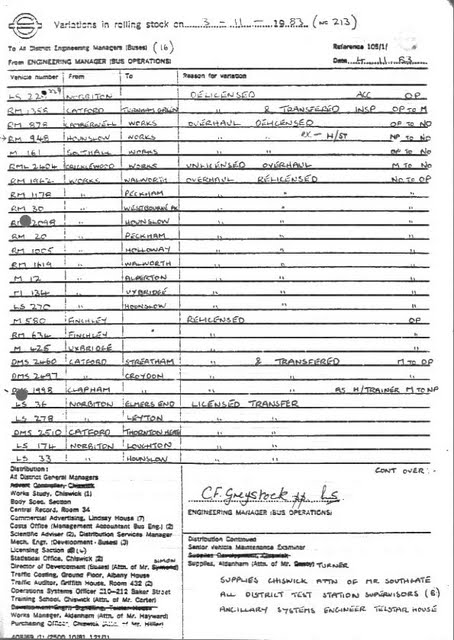 Variations in rolling stock on 3 - 11 - 1983 (No 213)
To All District Engineering Managers (Buses) (16) Reference 105/1/
From ENGINEERING MANAGER (BUS OPERATIONS) Date 4.11.83
Vehicle number From To Reason for variation
LS NORBITON DELICENSED ACC OP
RM 1355 CATFORD TURNHAM GREEN " & TRANSFERED INSP OP TO M
RM 878 CAMBERWELL WORKS OVERHAUL DELICENSED OP TO NO
RM 948 HOUNSLOW WORKS " NP TO NO
M 161 SOUTHALL WORKS " OP TO NO
RML 2404 CRICKLEWOOD WORKS UNLICENSED OVERHAUL M TO NO
RM 1962 WORKS WALWORTH OVERHAUL RELICENSED NO TO OP
RM 1178 " PECKHAM " "
RM 30 " WESTBOURNE PK " "
2098 " HOUNSLOW " "
RM 20 " PECKHAM " "
RM 1005 " HOLLOWAY " "
RM 1619 " WALWORTH " "
M 12 " ALPERTON " "
M 134 " UXBRIDGE " "
LS 270 " HOUNSLOW " "
M 580 FINCHLEY RELICENSED OP
RM 634 FINCHLEY " "
M 425 UXBRIDGE "
DMS 2460 CATFORD STREATHAM " & TRANSFERED M TO OP
DMS 2497 " CROYDON " " "
DMS 1998 CLAPHAM " " AS H/TRAINER M TO NP
LS 36 NORBITON ELMERS END LICENSED TRANSFER
LS 278 " LEYTON " "
DMS 2510 CATFORD THORNTON HEATH " "
LS 174 NORBITON LOUGHTON " "
LS 33 " HOUNSLOW " "
CONT OVER:-
Distribution:
All District General Managers
Advert Controller Chiswick
Works Study, Chiswick (1)
Body Spec. Section
Central Record, Room 34
Commercial Advertising, Lindsey House (7)
Costs Office (Management Accountant Bus Eng.) (2)
Scientific Adviser (2), Distribution Services Manager
Mech. Engr. (Development - Buses) (3)
Licensing Section
Statistical Office, Chiswick (2)
Director of Development (Buses) (Attn. of Mr. SIMON
Traffic Costing, Ground Floor, Albany House
Traffic Auditor, Griffith House, Room 432 (2)
Operations Systems Officer 210-212 Baker Street
Training School, Chiswick (Attn. of Mr. Carter)
Works Manager, Aldenham (Attn. of Mr. Hayward)
Purchasing Officer, Chiswick (Attn. of Mr. Hillier)
C.F. Greystock pp LS
ENGINEERING MANAGER (BUS OPERATIONS)
Distribution Continued
Senior Vehicle Maintenance Examiner
Supplies, Aldenham (Attn. of Mr. TURNER
SUPPLIES CHISWICK ATTN OF MR SOUTHGATE
ALL DISTRICT TEST STATION SUPERVISORS (6)
ANCILLARY SYSTEMS ENGINEER TELSTAR HOUSE